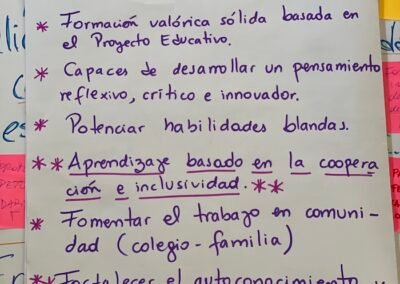 * Formación valórica sólida basada en
el Proyecto Educativo.
* Capaces de desarrollar un pensamiento
reflexivo, crítico e innovador.
* Potenciar habilidades blandas.
** Aprendizaje basado en la coopera
ción e inclusividad. **
* Fomentar el trabajo en comuni-
dad (colegio - familia)
** Fortalecer el autoconocimiento y